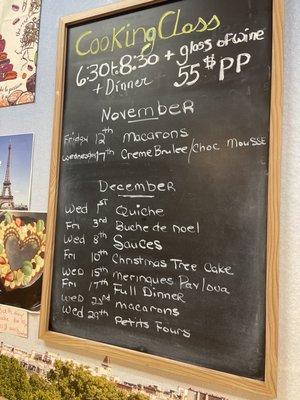 Cooking Class
6:30-8:30 + glass of wine
+ Dinner 55$ PP
November
Friday 12th Macarons
Wednesday 17th Creme Brulee/choc Mousse
December
Wed 1st Quiche
Fri 3rd Buche de noel
Wed 8th Sauces
Fri 10th Christmas Tree Cake
Wed 15th meringues Pavlova
Fri 17th Full Dinner
Wed 22nd macarons
Wed 29th Petits Fours